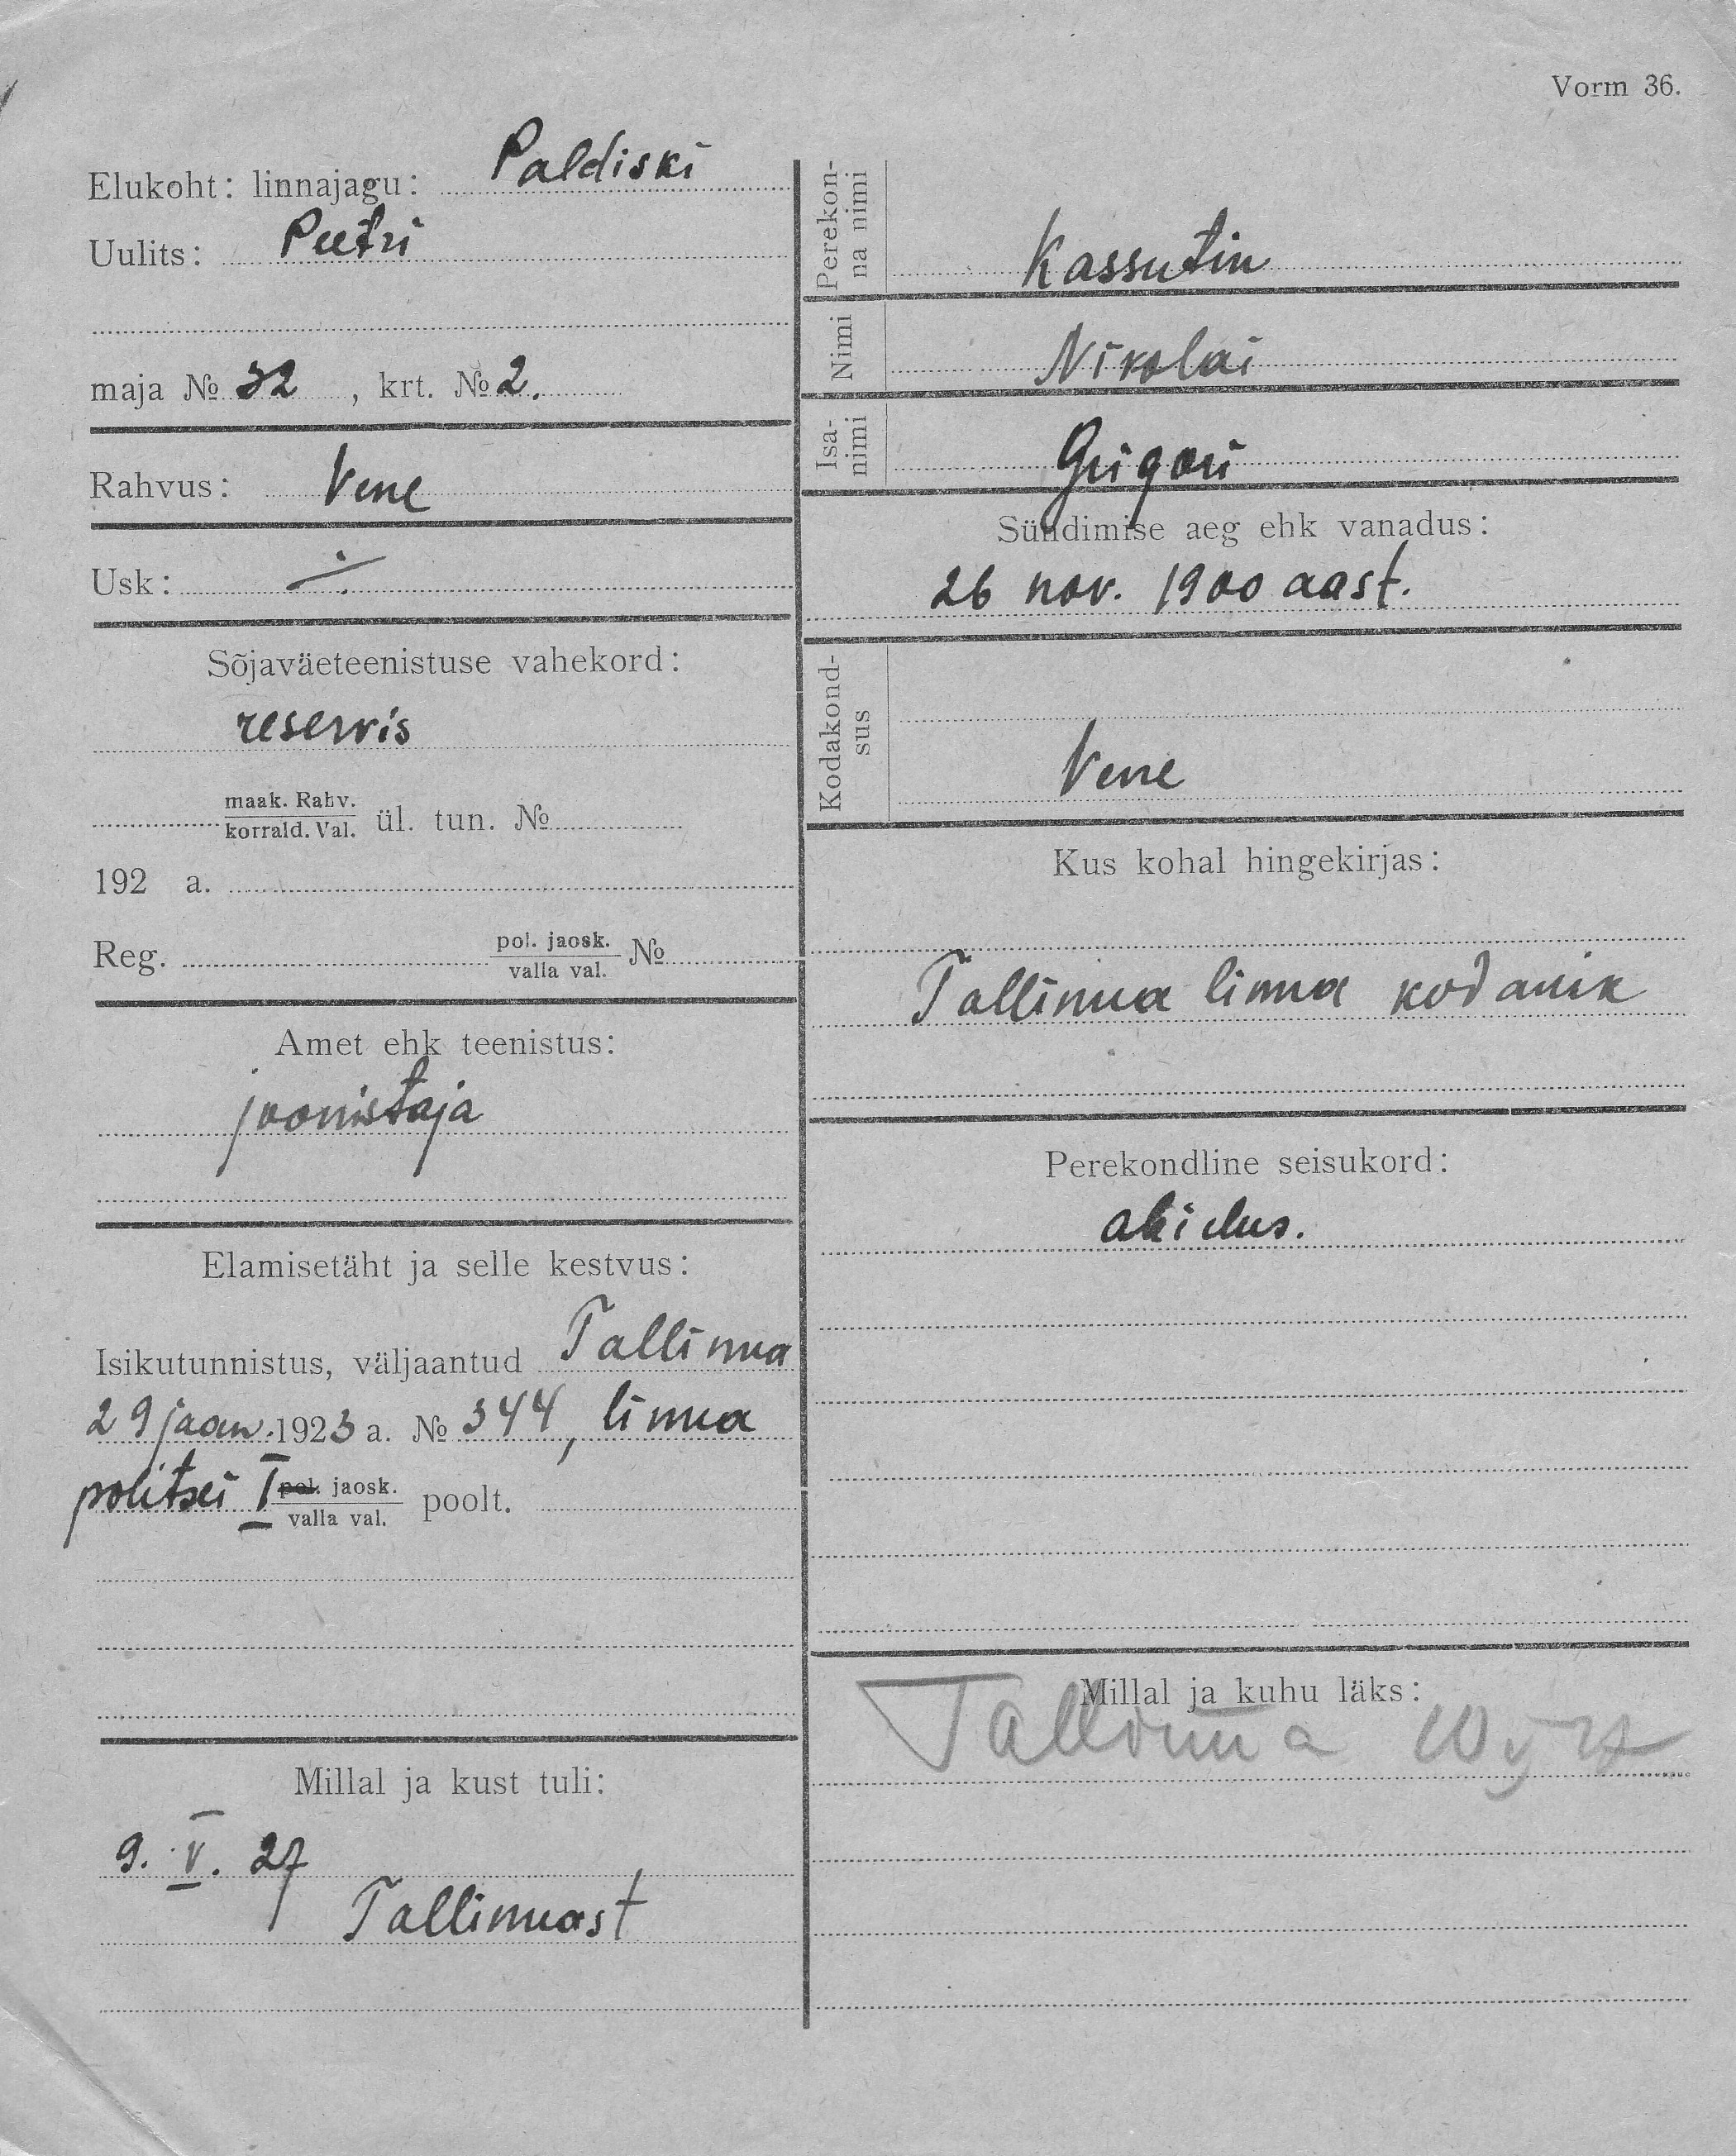 Vorm 36.
Elukoht: linnajagu: Paldiski
Uulits: Peetri
maja № 32, krt. № 2.
Rahvus: Vene
Usk: ·/.
Sõjaväeteenistuse vahekord:
reservis
maak. Rahv.
korrald. Val. ül. tun. №
192 a.
Reg. pol. jaosk. №
valla val.
Amet ehk teenistus:
joonistaja
Elamisetäht ja selle kestvus:
Isikutunnistus, väljaantud Tallinna
29 jaan. 1923 a. № 344, linna
politsei I pol. jaosk. poolt.
valla val.
Millal ja kust tuli:
9. V. 27
Tallinnast
Perekon-
na nimi
Kassutin
Nimi
Nikolai
Isa-
nimi
Grigori
Sündimise aeg ehk vanadus:
26 nov. 1900 aast.
Kodakond-
sus
Vene
Kus kohal hingekirjas:
Tallinna linna kodanik
Perekondline seisukord:
abielus.
Millal ja kuhu läks:
Tallinna 10 V 27